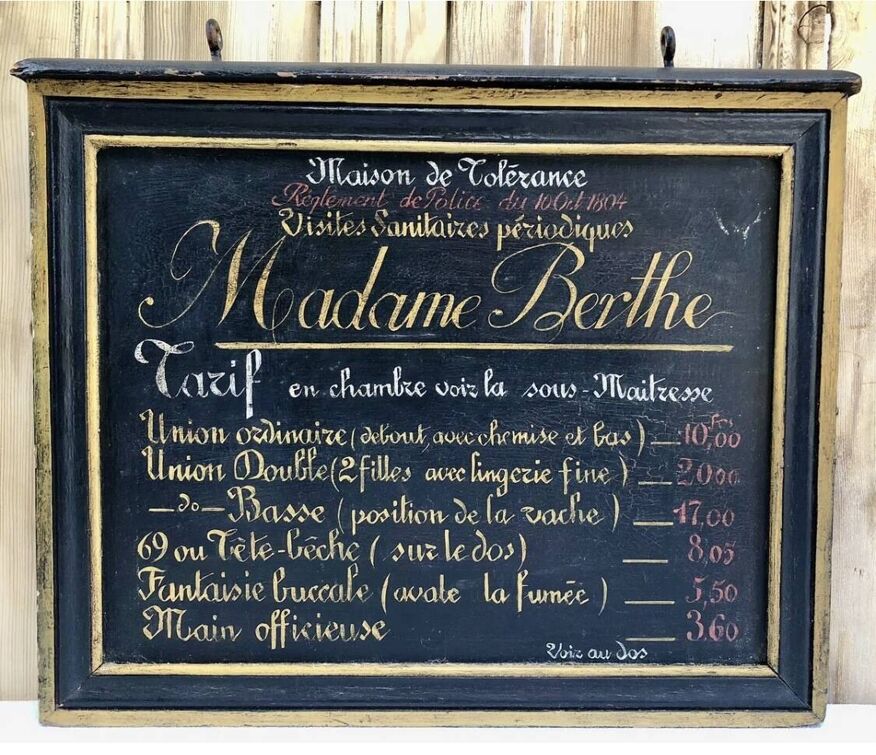 Maison de Tolérance
Règlement de Police du 10 Oct 1804
Visites Sanitaires périodiques
Madame Berthe
Tarif en chambre voir la sous-Maitresse
Union ordinaire (debout, avec chemise et bas) — 10,00 frs
Union Double (2 filles avec lingerie fine) — 20 00
— do — Basse (position de la vache) — 17,00
69 ou Tête-bêche (sur le dos) — 8,05
Fantaisie buccale (avale la fumée) — 5,50
Main officieuse — 3,60
Voir au dos